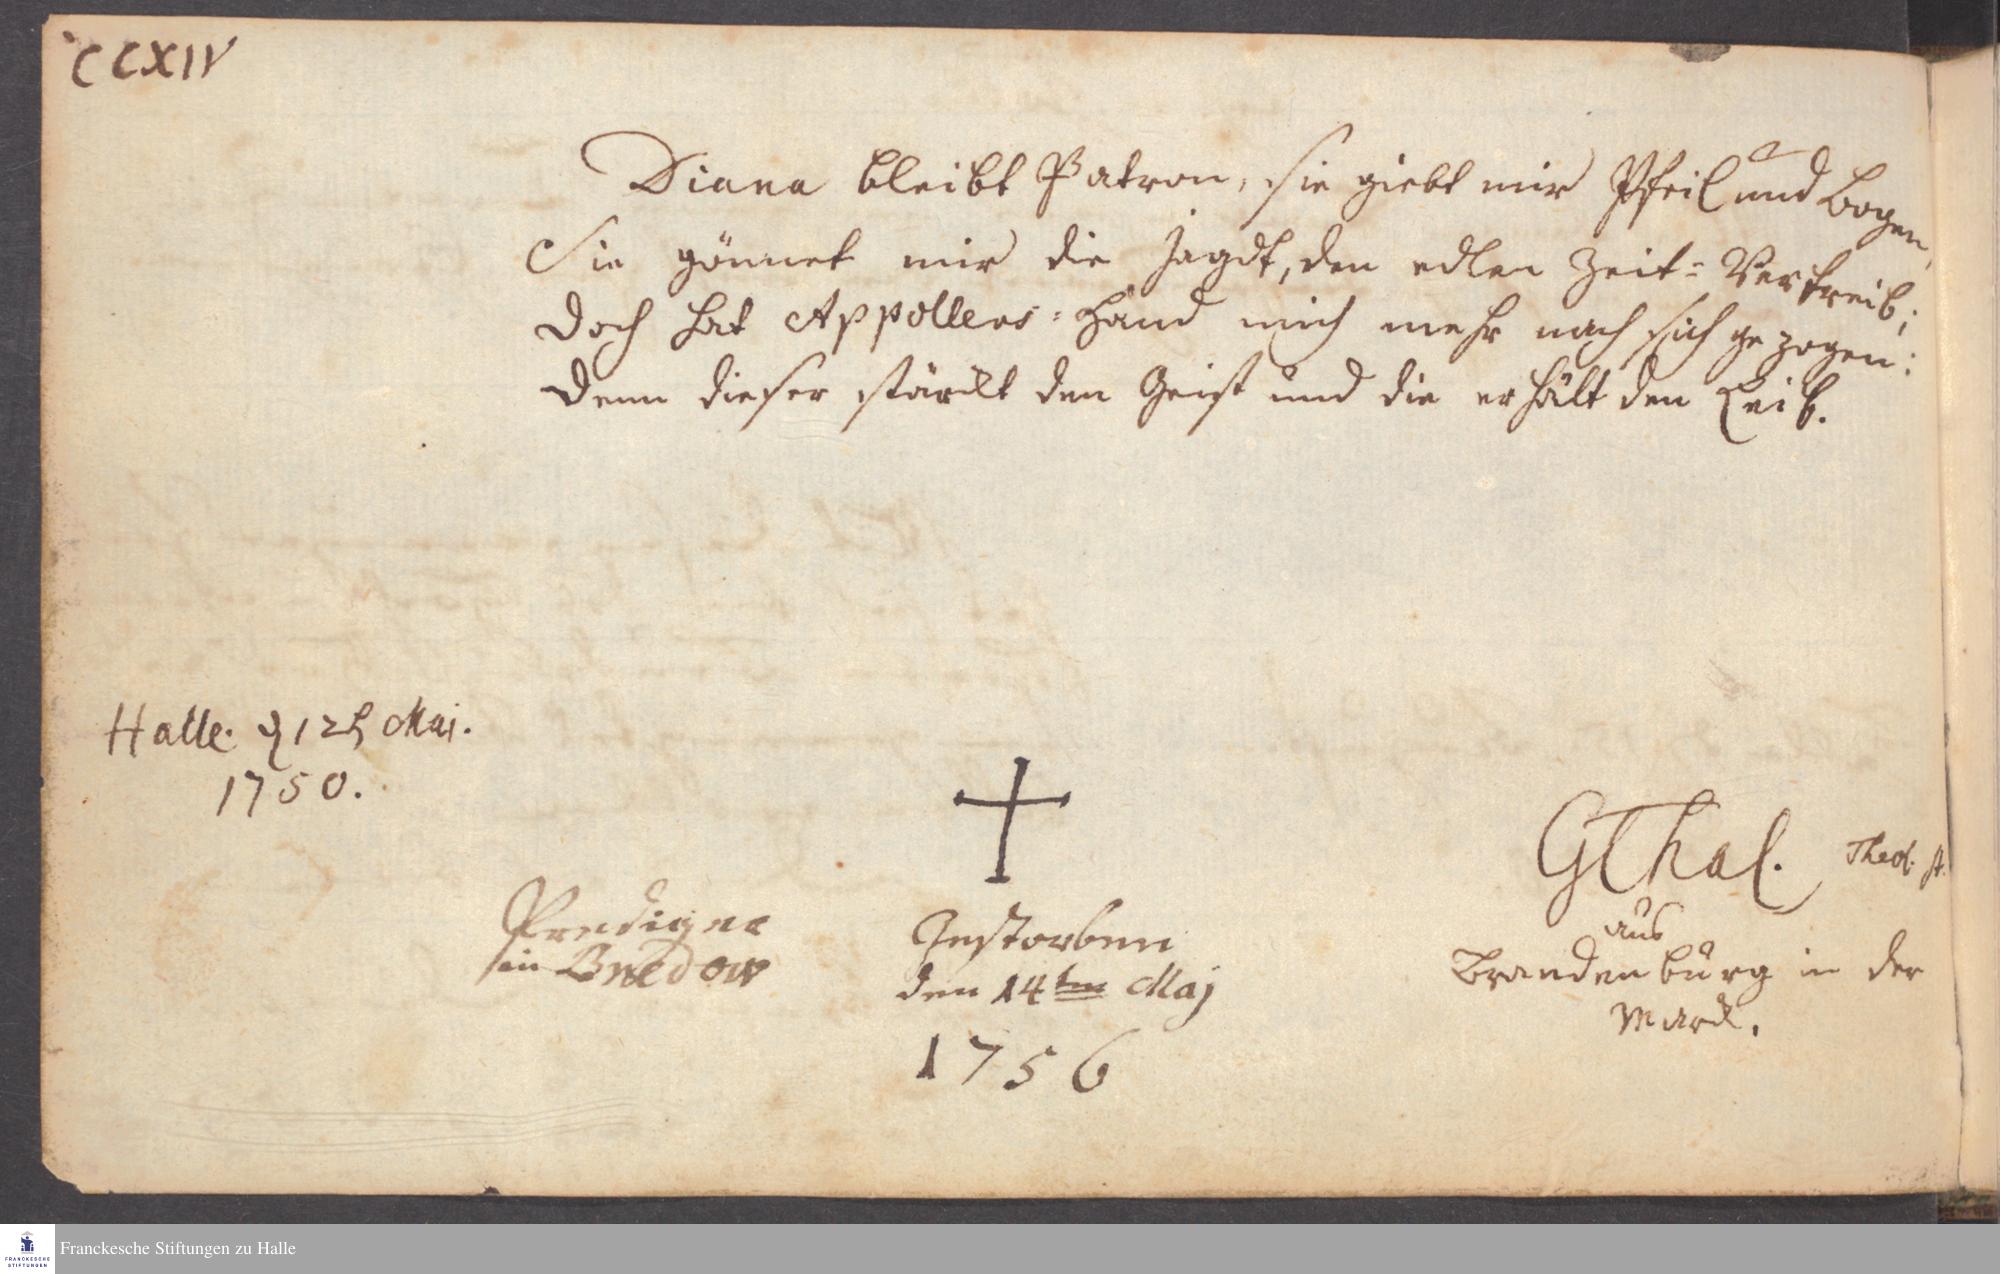 CCXIV
Diana bleibt Patron, sie giebt mir Pfeil und Bogen,
Sie gönnet mir die Jagdt, den edlen Zeit-Vertreib;
Doch hat Appollens-Hand mich mehr nach sich gezogen:
Denn dieser stärckt den Geist und die erhält den Leib.
Halle. d 12 Mai.
1750.
GThal. Theol. st.
aus
Brandenburg in der
Marck.
Prediger
in Bredow
Gestorben
den 14ten Maj
1756
FRANCKESCHE
STIFTUNGEN
Franckesche Stiftungen zu Halle